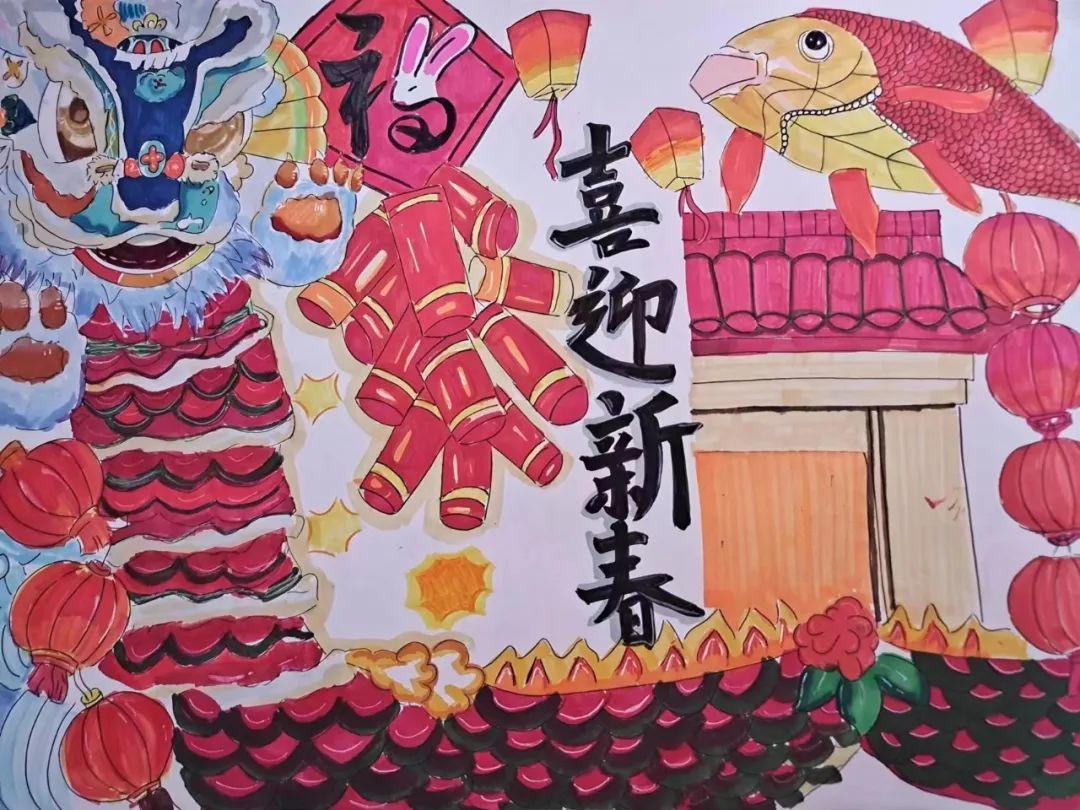 福
喜迎新春